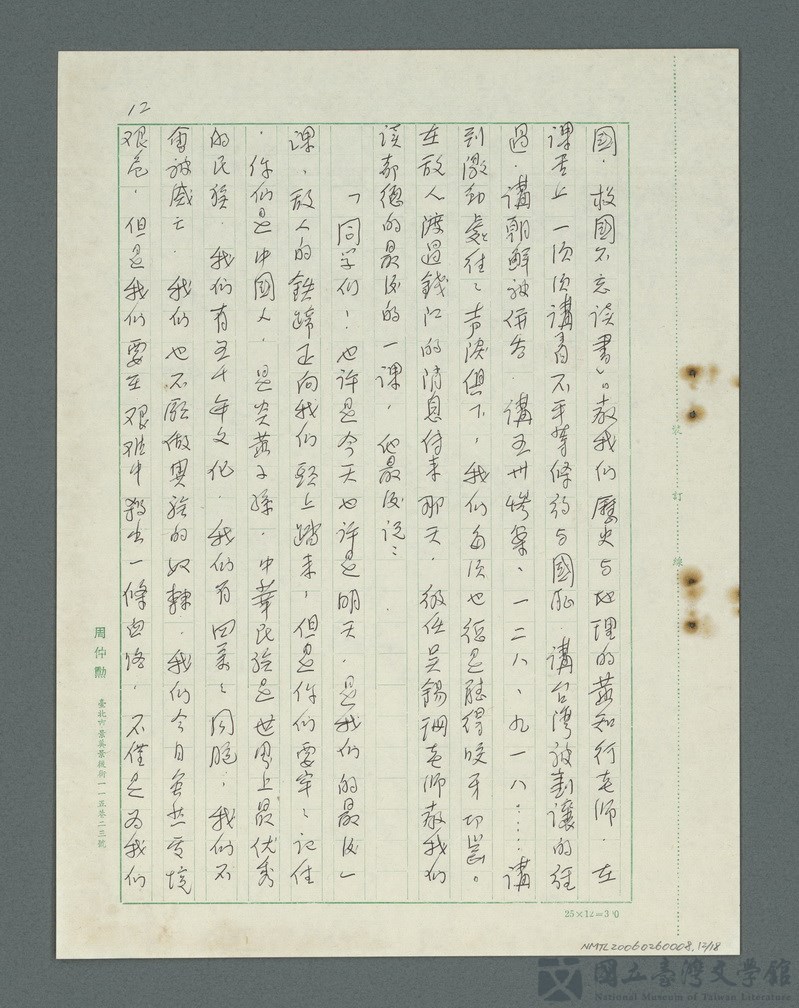 12
國，救國不忘读書」。教我們歷史与地理的黃知行老师，在
課堂上一次次講着不平等條约与國耻，講台灣被割讓的经
過，講朝鮮被併吞，講五卅惨案、一二八、九一八……講
到激动處往往声淚俱下，我们每次也總是聽得咬牙切齿。
在敌人渡過錢江的消息传来那天，级任吴錫珊老师教我们
读都德的最後的一課，他最後说：
「同学们！也许是今天也许是明天，是我们的最後一
課，敌人的鉄蹄正向我们頭上踏来，但是你们要牢牢记住
，你们是中國人，是炎黃子孫，中華民族是世界上最优秀
的民族，我们有五千年文化，我们有四萬万同胞，我们不
會被滅亡，我们也不願做異族的奴隸，我们今日虽然處境
艰危，但是我们要在艰难中殺出一條血路，不僅是为我们
裝訂線
周仲勳
臺北六景美景後街一一五巷二三號
25×12=300
NMTL20060260008.12/18
國立臺灣文學館
National Museum of Taiwan Literature